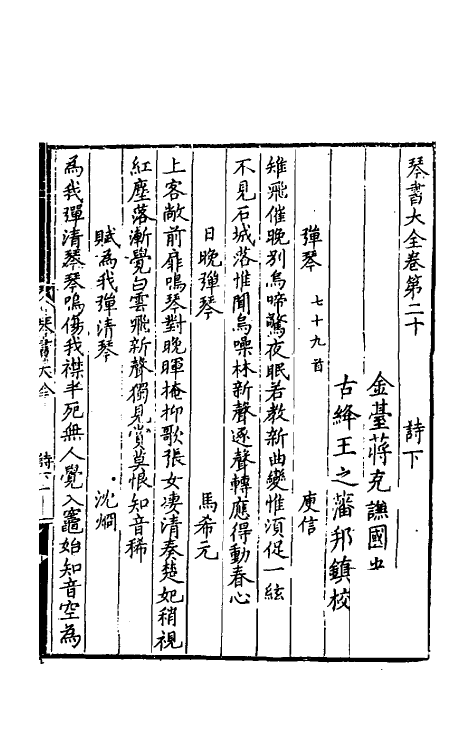 琴書大全卷第二十
詩下
金臺蔣克謙國出
古絳王之藩邦鎮校
彈琴 七十九首 庾信
雉飛催晚别烏啼驚夜眠若教新曲變惟須促一絃
不見石城落惟聞烏噪林新聲逐聲轉應得動春心
日晚彈琴 馬希元
上客敞前扉鳴琴對晚暉掩抑歌張女凄清奏楚妃稍視
紅塵落漸覺白雲飛新聲獨見賞莫恨知音稀
賦為我彈清琴 沈烱
為我彈清琴琴嗚傷我襟半死無人覺入竈始知音空為
琴書大全
詩下